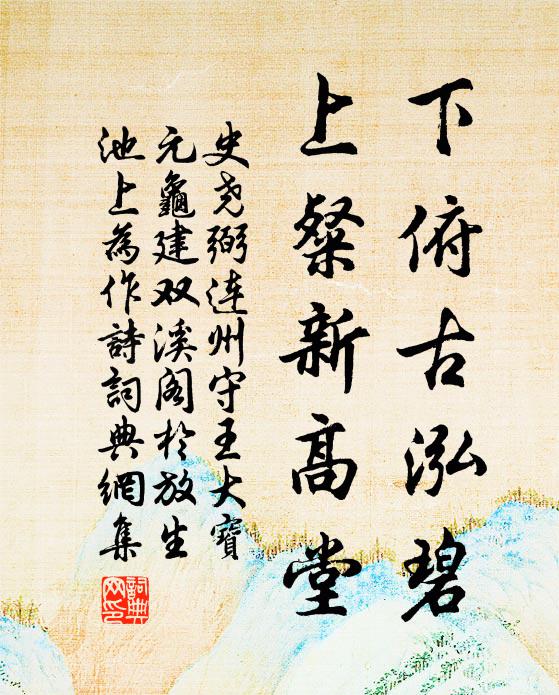 下俯古泓碧
上粲新高堂
史尧弼连州守王大寶
元龜建双溪阁於放生
池上為作詩詞典網集
詞典网印